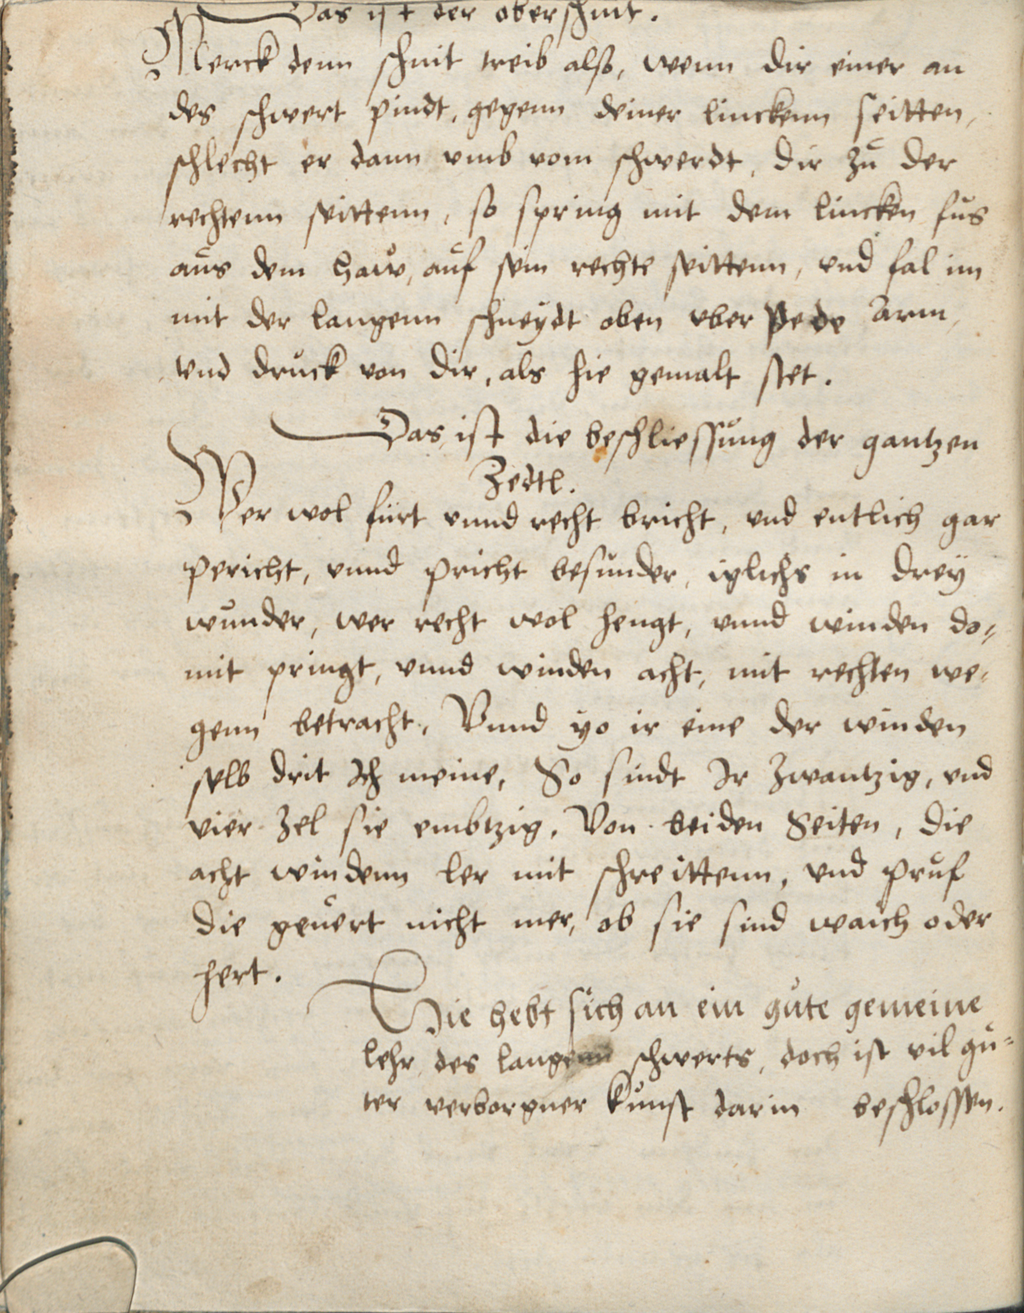 Das ist der oberschnit.
Merck denn schnit treib also, wenn dir einer an
des schwert pindt, gegenn deiner linckenn seitten,
schlecht er dann vmb vom schwerdt, dir zů der
rechtenn seittenn, so spring mit dem lincken fůs
aůs dem haw, aůf sein rechte seittenn, vnd fal im
mit der langenn schneydt oben vber pede arm,
vnd drůck von dir, als hie gemalt stet.
Das ist die beschliessůng der gantzen
Zedtl.
Wer wol fůrt vnnd recht bricht, vnd entlich gar
pericht, vnnd pricht besůnder, iglichs in drey
wůnder, wer recht wol hengt, vnnd winden do-
mit pringt, vnnd winden acht, mit rechten we-
genn betracht, Vnnd yo ir eine der winden
selb drit Ich meine, So sindt Ir zwantzig, vnd
vier zel sie embtzig, Von beiden Seiten, die
acht windenn ler mit schreittenn, vnd průf
die geůert nicht mer, ob sie sind waich oder
hert.
Hie hebt sich an ein gůte gemeine
lehr, des langenn schwerts, doch ist vil gů-
ter verborgner kůnst darin beschlossen.